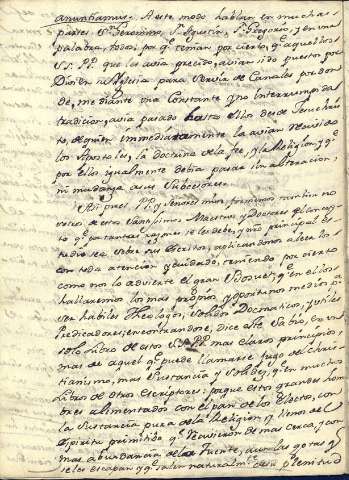 anuntiamus. A este modo hablan en muchas
partes Sn. Geronimo, Sn. Agustin, Sn. Gregorio, y en una
palabra, todos; porqe. tenian por cierto, qe. aquellos
SS. PP. que les avia precedido, avian sido puestos por
Dios en su Yglesia para servir de Canales por don
de, mediante una Constante y no Interrumpida
tradicion, avia pasado hasta ellos desde Jesuchris
to, de quien immediatamente la avian recivido
los Apostoles, la doctrina de la fee, y la Religion, y qe.
por ellos igualmente debia pasar sin alteracion,
ni mudanza a sus Subcesores.
Asi pues, PP. y Señores mios, formemos tambien no
sotros de estos Santisimos Maestros, y Doctores el concep
to qe. por tantas razones se les debe, y nro. principal es
tudio sea sobre sus Escritos, aplicandonos a leerlos
con toda atencion y cuidado, teniendo por cierto
como nos lo advierte el gran Bosuet, qe. en ellos
hallaremos los mas propios, y oportunos medios pa.
ser habiles Theologos, Solidos Dogmaticos, y utiles
Predicadores; encontrandose, dice este Sabio, en un
solo Libro de estos SS. PP. mas claros principios,
mas de aquel qe. puede llamarse jugo del Chris
tianismo, mas sustancia y solidez, qe. en muchos
Libros de otros Escriptores: porque estos grandes hom
bres alimentados con el pan de los Electos, con
la Sustancia pura de la Religion, y llenos de
espiritu primitivo qe. recivieron de mas cerca, y con
mas abundancia de la Fuente, aun las gotas qe.
se les escapan y qe. salen naturalmte. de su plenitud